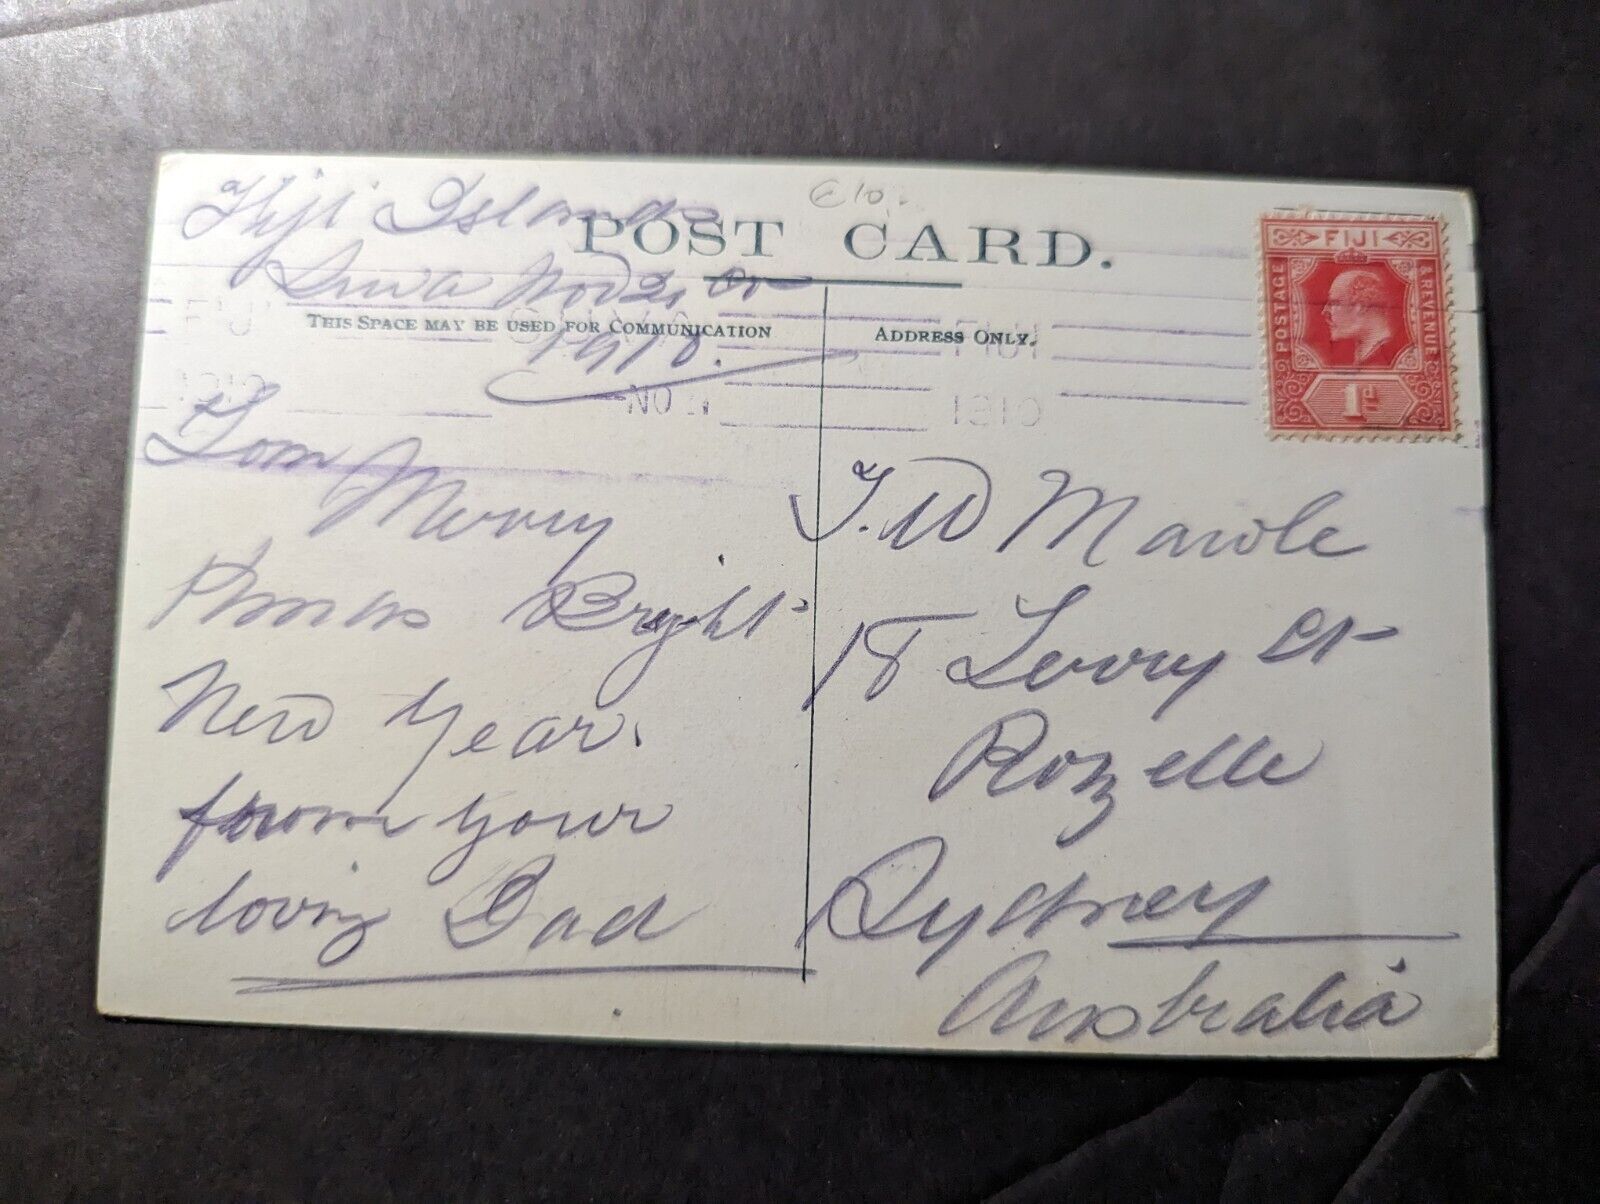 Fiji Islands
POST CARD.
Suva Nov
1910.
THIS SPACE MAY BE USED FOR COMMUNICATION
ADDRESS ONLY.
FIJI
SUVA
FIJI
1910
NO
1910
FIJI
POSTAGE
& REVENUE
1d
Tom Merry
Xmas Bright
New Year.
from your
loving Dad
T. W Marole
18 Lorry St
Rozelle
Sydney
Australia